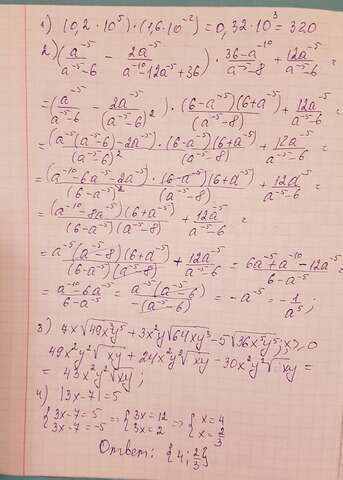 1) (0,2 · 10⁵) · (1,6 · 10⁻²) = 0,32 · 10³ = 320
2) (a⁻⁵/(a⁻⁵-6) - 2a⁻⁵/(a⁻¹⁰-12a⁻⁵+36)) · (36-a⁻¹⁰)/(a⁻⁵-8) + 12a⁻⁵/(a⁻⁵-6) =
= (a⁻⁵/(a⁻⁵-6) - 2a⁻⁵/(a⁻⁵-6)²) · (6-a⁻⁵)(6+a⁻⁵)/(a⁻⁵-8) + 12a⁻⁵/(a⁻⁵-6) =
= (a⁻⁵(a⁻⁵-6)-2a⁻⁵)/(a⁻⁵-6)² · (6-a⁻⁵)(6+a⁻⁵)/(a⁻⁵-8) + 12a⁻⁵/(a⁻⁵-6) =
= (a⁻¹⁰-6a⁻⁵-2a⁻⁵)/(6-a⁻⁵)² · (6-a⁻⁵)(6+a⁻⁵)/(a⁻⁵-8) + 12a⁻⁵/(a⁻⁵-6) =
= (a⁻¹⁰-8a⁻⁵)(6+a⁻⁵)/(6-a⁻⁵)(a⁻⁵-8) + 12a⁻⁵/(a⁻⁵-6) =
= a⁻⁵(a⁻⁵-8)(6+a⁻⁵)/(6-a⁻⁵)(a⁻⁵-8) + 12a⁻⁵/(a⁻⁵-6) = (6a⁻⁵+a⁻¹⁰-12a⁻⁵)/(6-a⁻⁵) =
= (a⁻¹⁰-6a⁻⁵)/(6-a⁻⁵) = a⁻⁵(a⁻⁵-6)/-(a⁻⁵-6) = -a⁻⁵ = -1/a⁵;
3) 7x√49x³y⁵ + 3x²y√64xy³ - 5√36x⁵y⁵; x≥0
49x²y²√xy + 24x²y²√xy - 30x²y²√xy =
= 43x²y²√xy;
4) |3x-7|=5
{3x-7=5 {3x-7=-5 => {3x=12 {3x=2 => {x=4 {x=2/3
Ответ: {4; 2/3}